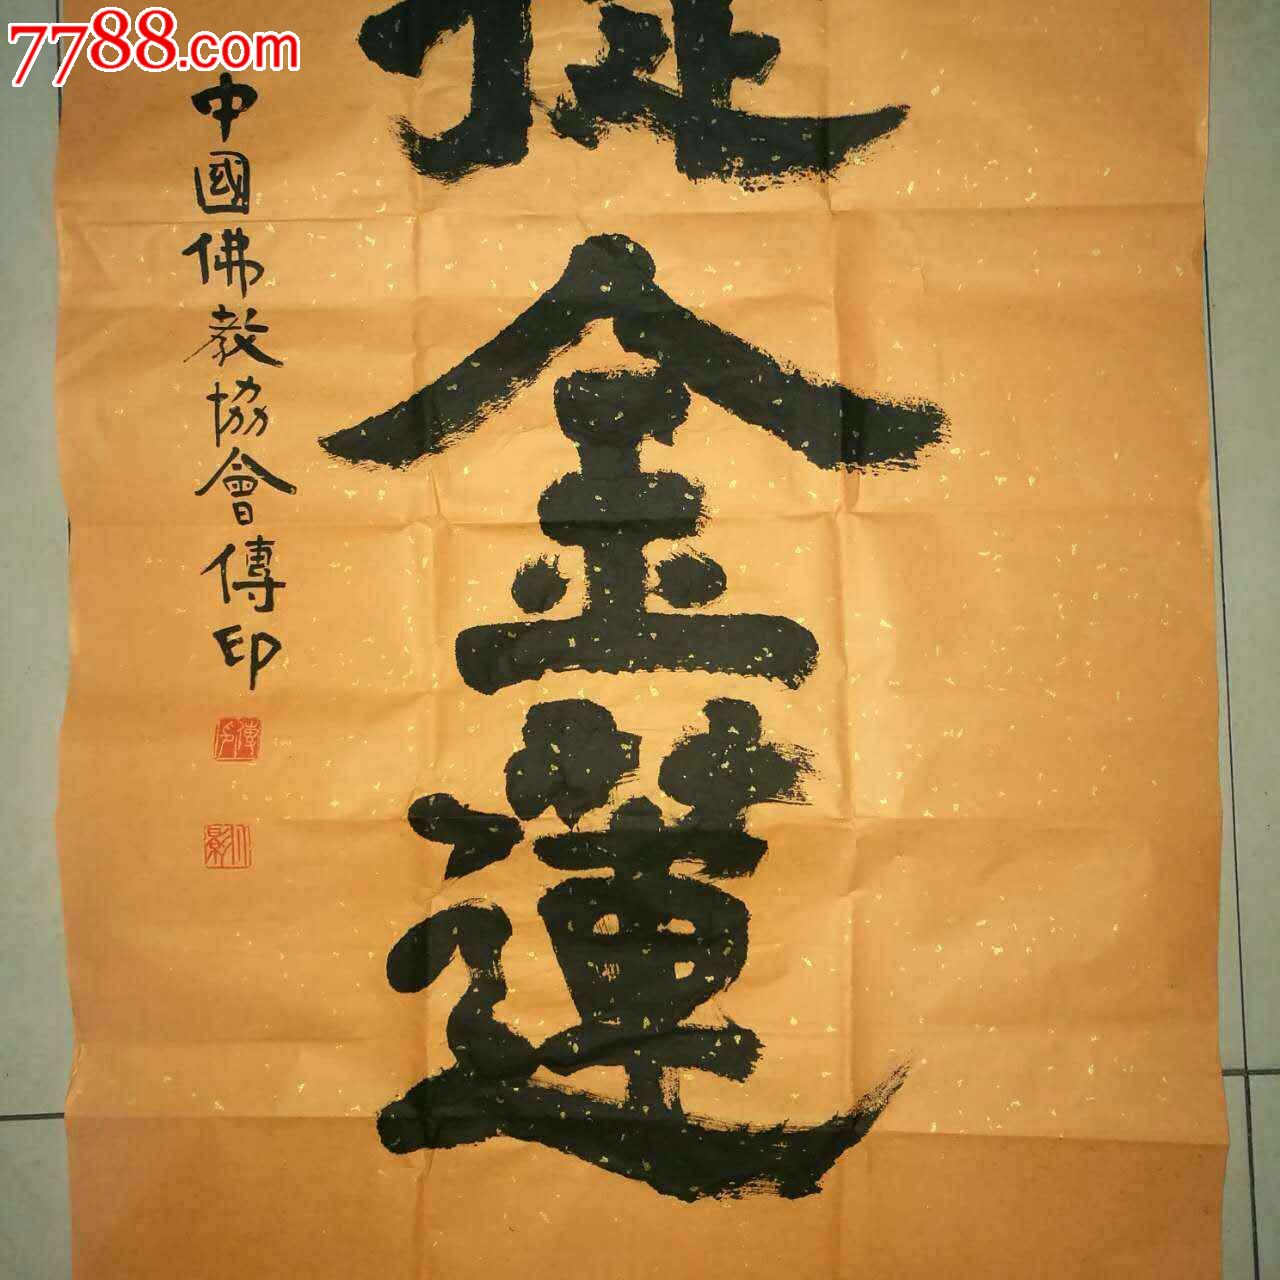 7788.com
金蓮
中國佛教協會傳印
傳印